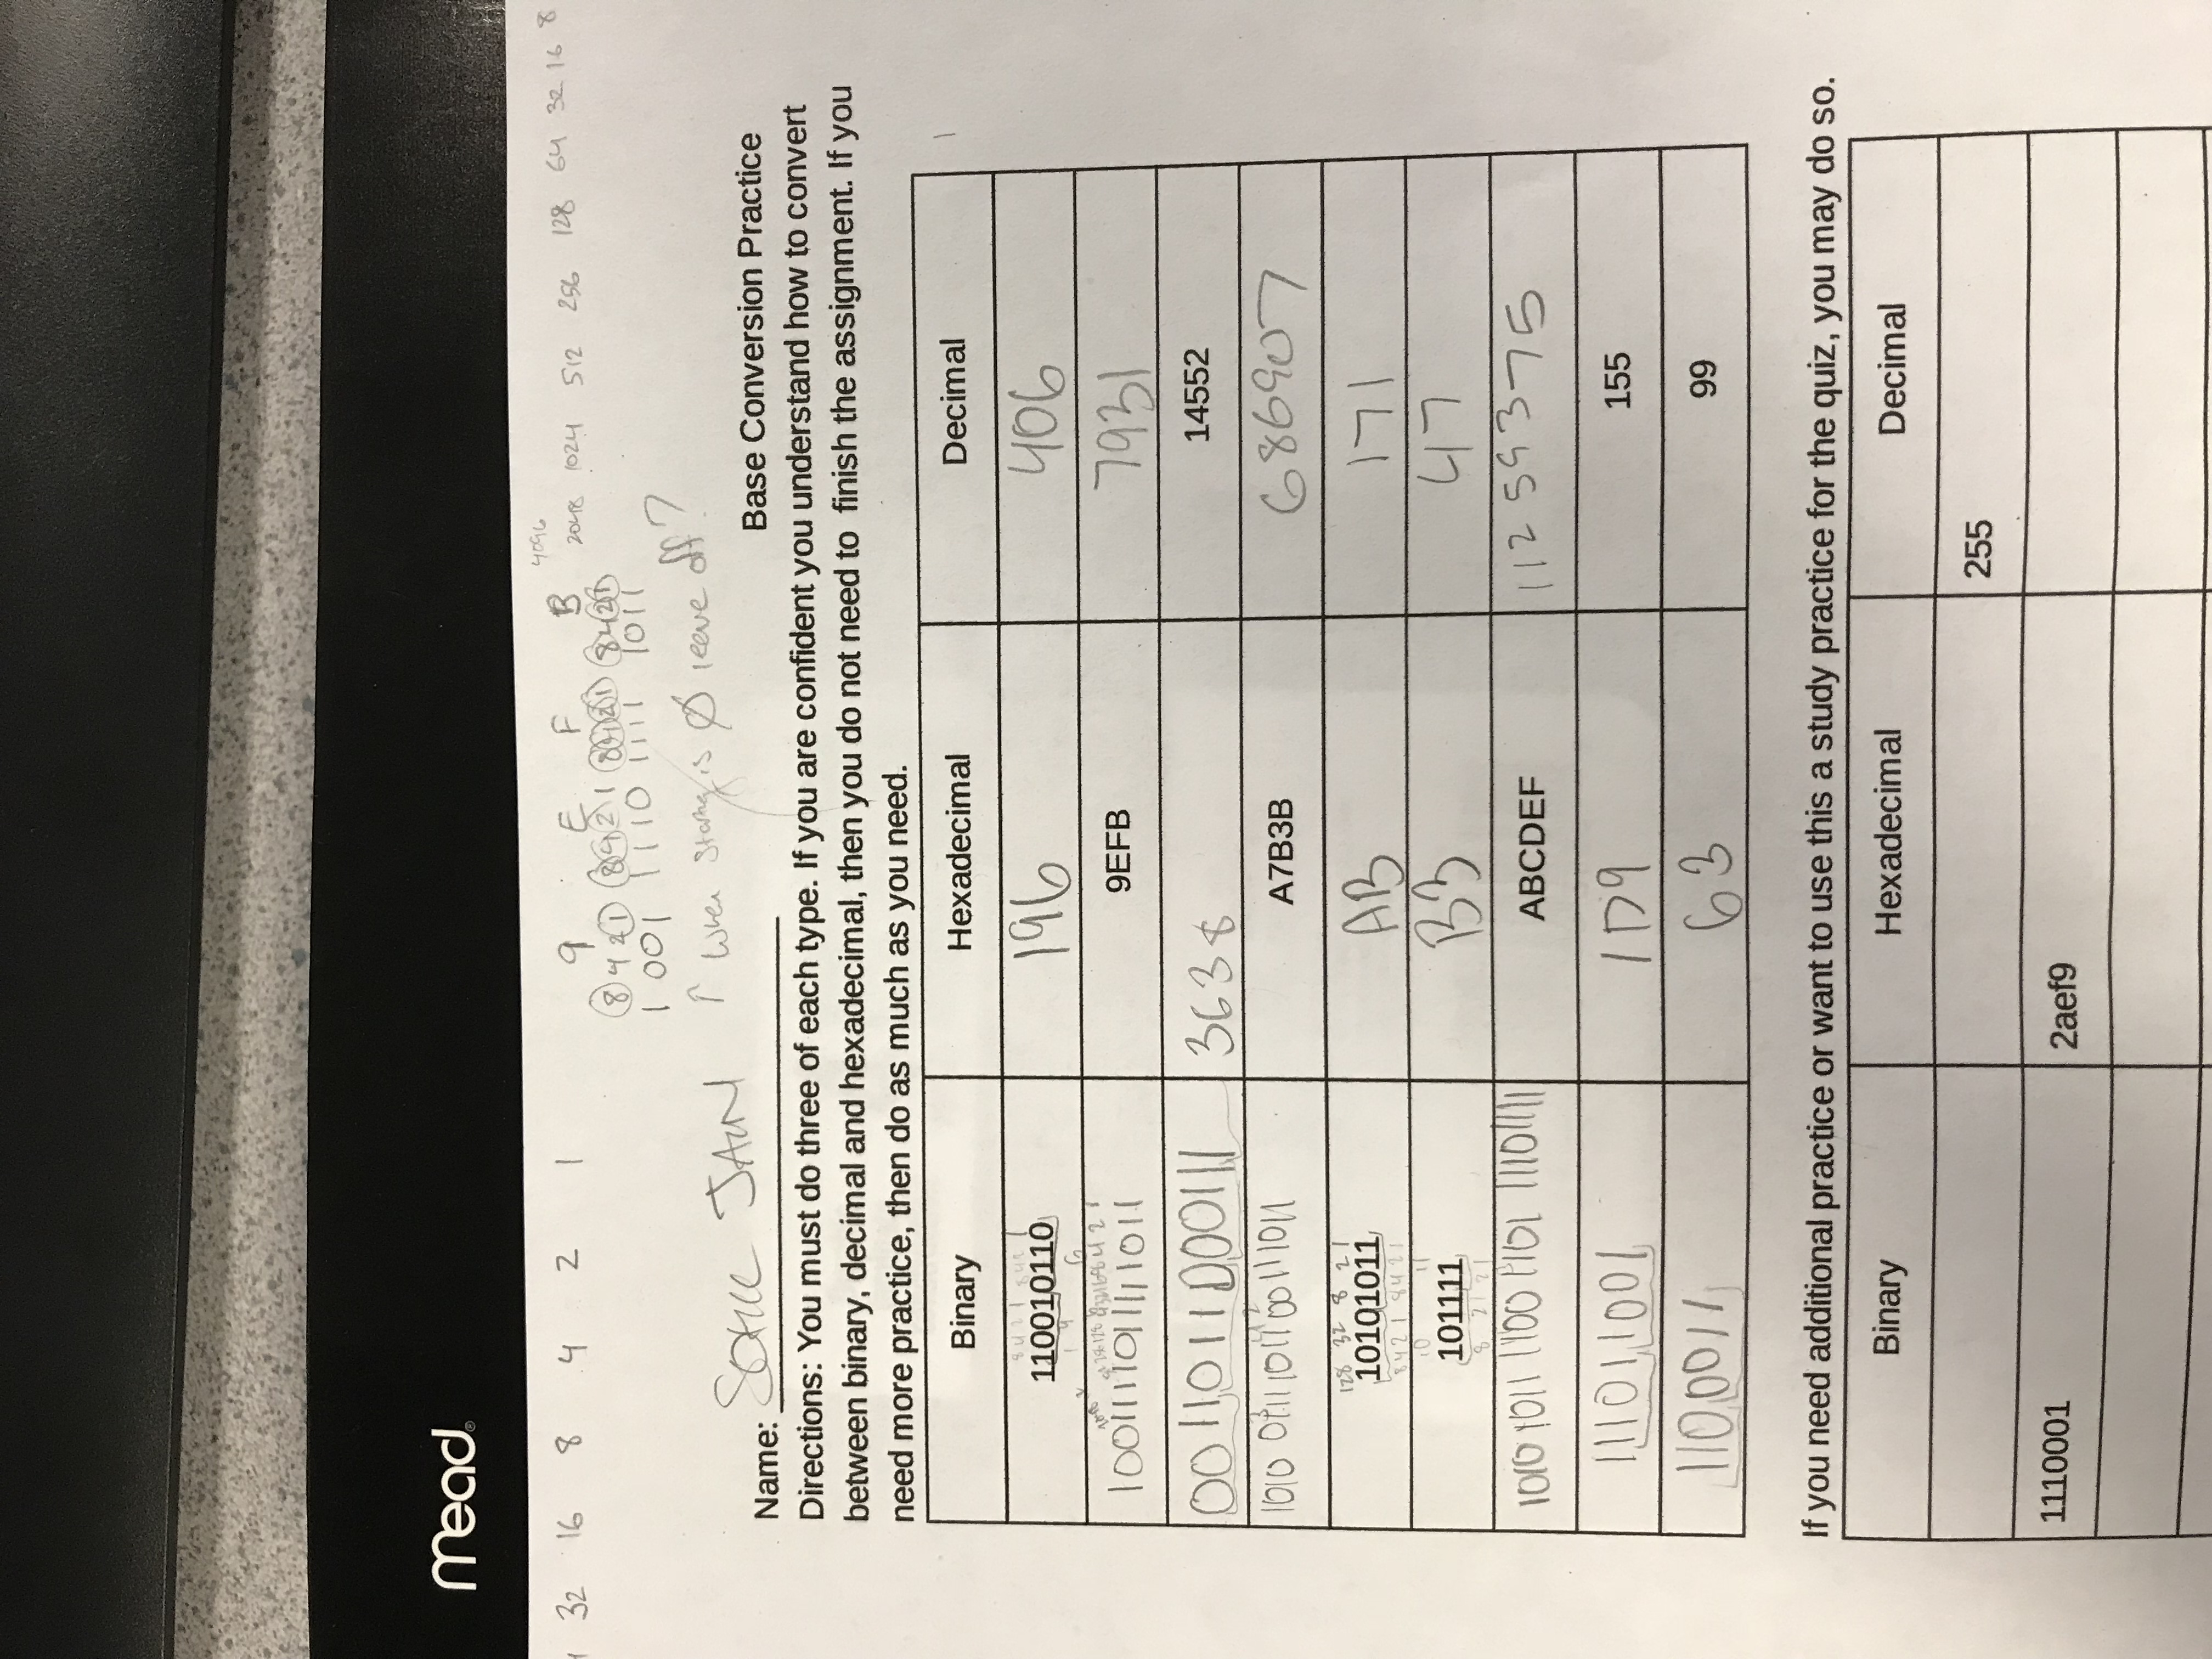 mead
32 16 8 4 2 1 9 E F B 4096 2048 1024 512 256 128 64 32 16 8
8 4 2 1 8 4 2 1 8 4 2 1 8 4 2 1
1 001 1110 1111 1011
↑ When is Ø leeve off?
Name: JAIN
Base Conversion Practice
Directions: You must do three of each type. If you are confident you understand how to convert
between binary, decimal and hexadecimal, then you do not need to finish the assignment. If you
need more practice, then do as much as you need.
Binary Hexadecimal Decimal
8 4 2 1 8 4 2 1
110010110 196 406
1 9 6
1001111011111011 9EFB 7931
00110110000111 3638 14552
1010 0111 1011 0011 1011 A7B3B 686907
128 32 8 2 1
10101011 AB 171
8 4 2 1 8 4 2 1
10 11
101111 B3 47
8 2 1 2 1
1010 1011 1100 1101 11101111 ABCDEF 11259375
111011001 1D9 155
1100011 63 99
If you need additional practice or want to use this a study practice for the quiz, you may do so.
Binary Hexadecimal Decimal
255
1110001 2aef9